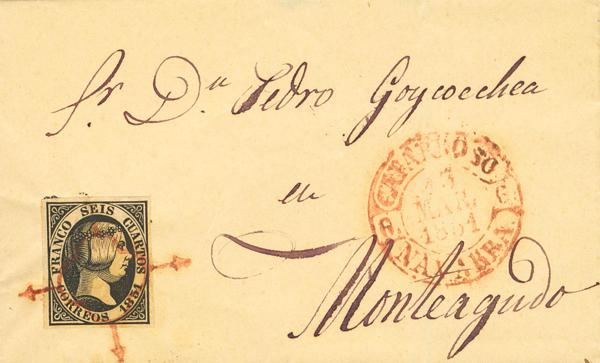 Sr. Dn Pedro Goycocchea
en
Monteagudo
FRANCO SEIS CUARTOS
CORREOS 1851
13
MAR.
1851
NAVARRA